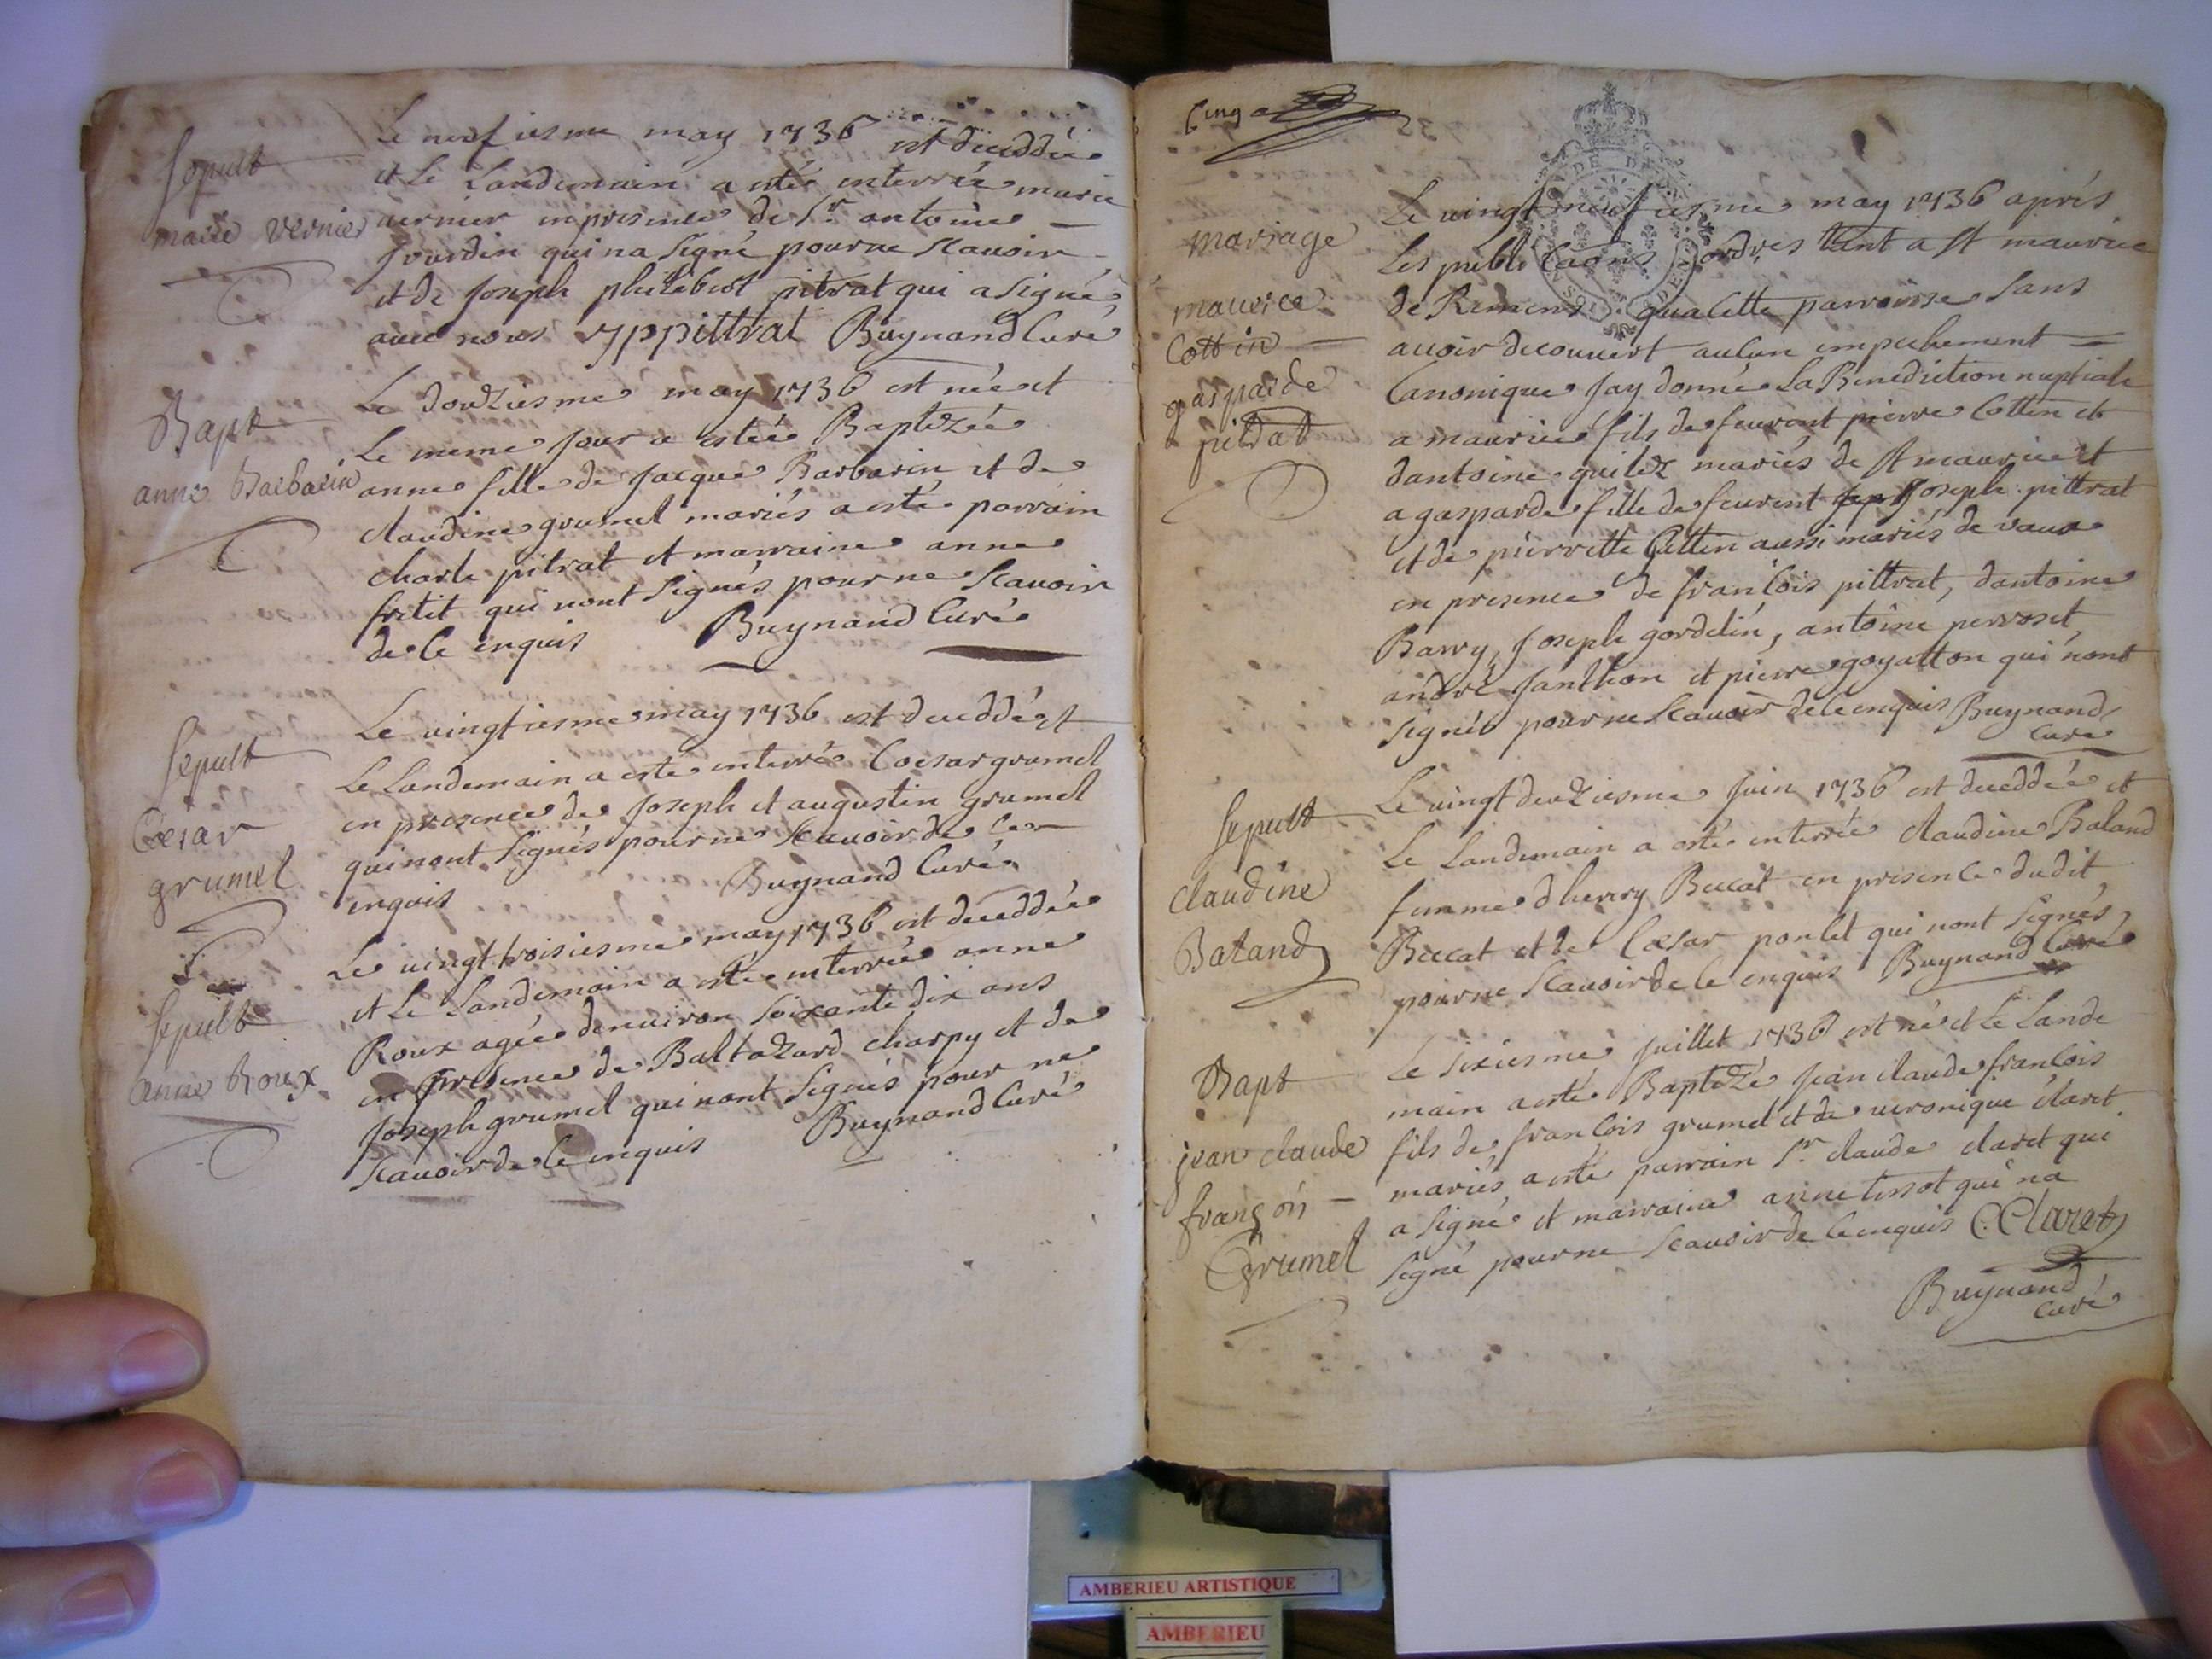 Sepult
marie vernier
Le neufiesme may 1736 est deceddée
et Le Landemain a estée enterrée marie
vernier en presence de Sr. antoine
Jourdin qui na Signé pour ne Scauoir
et de Joseph philibert pitrat qui a Signé
auec nous JPpittrat Buynand Curé
Bapt
anne Barbarin
Le douziesme may 1736 est née et
Le meme Jour a estée Baptizée
anne fille de Jacque Barbarin et de
claudine grumel mariés a esté parrain
charle pitrat et marraine anne
fretit qui nont Signés pour ne Scauoir
de ce enquis Buynand Curé
Sepult
Cœsar
grumel
Le vingtiesme may 1736 est deceddé et
Le Landemain a esté enterré Cœsar grumel
en presence de Joseph et augustin grumel
qui nont Signés pour ne Scauoir de ce
enquis Buynand Curé
Sepult
anne Roux
Le vingt troisiesme may 1736 est deceddée
et Le Landemain a esté enterrée anne
Roux agée denuiron soixante dix ans
en presence de Baltazard charpy et de
Joseph grumel qui nont Signés pour ne
Scauoir de ce enquis Buynand Curé
Cinq
mariage
maurice
Cottin
gasparde
pitrat
Le vingt neufiesme may 1736 aprés
Les publicaons ordres tant a St maurice
de Remens qua Cette parroisse Sans
auoir decouuert aucun empechement
Canonique Jay donné La Benediction nuptiale
a maurice fils de feuront pierre Cottin et
dantoine quilez mariés de St maurice et
a gasparde fille de feurent Joseph pittrat
et de pierrette Cottin aussi mariés de vaux
en presence de francois pittrat, dantoine
Barry, Joseph gordelin, antoine perroset
andré Janthon et pierre goyatton qui nont
signés pour ne Scauoir de ce enquis Buynand
Curé
Sepult
Claudine
Baland
Le vingt deuziesme Juin 1736 est deceddée et
Le Landemain a esté enterrée claudine Baland
femme d henry Beccat en presence dudit
Beccat et de Cœsar ponlet qui nont Signés
pour ne Scauoir de ce enquis Buynand Curé
Bapt
jean claude
françois
Grumel
Le sixiesme Juillet 1736 est né et Le Lande
main a esté Baptizé Jean claude francois
fils de francois grumel et de ueronique claret
mariés a esté parrain Sr. claude claret qui
a Signé et marraine anne tissot qui na
Signé pour ne Scauoir de ce enquis CClaret
Buynand
Curé
AMBERIEU ARTISTIQUE
AMBERIEU